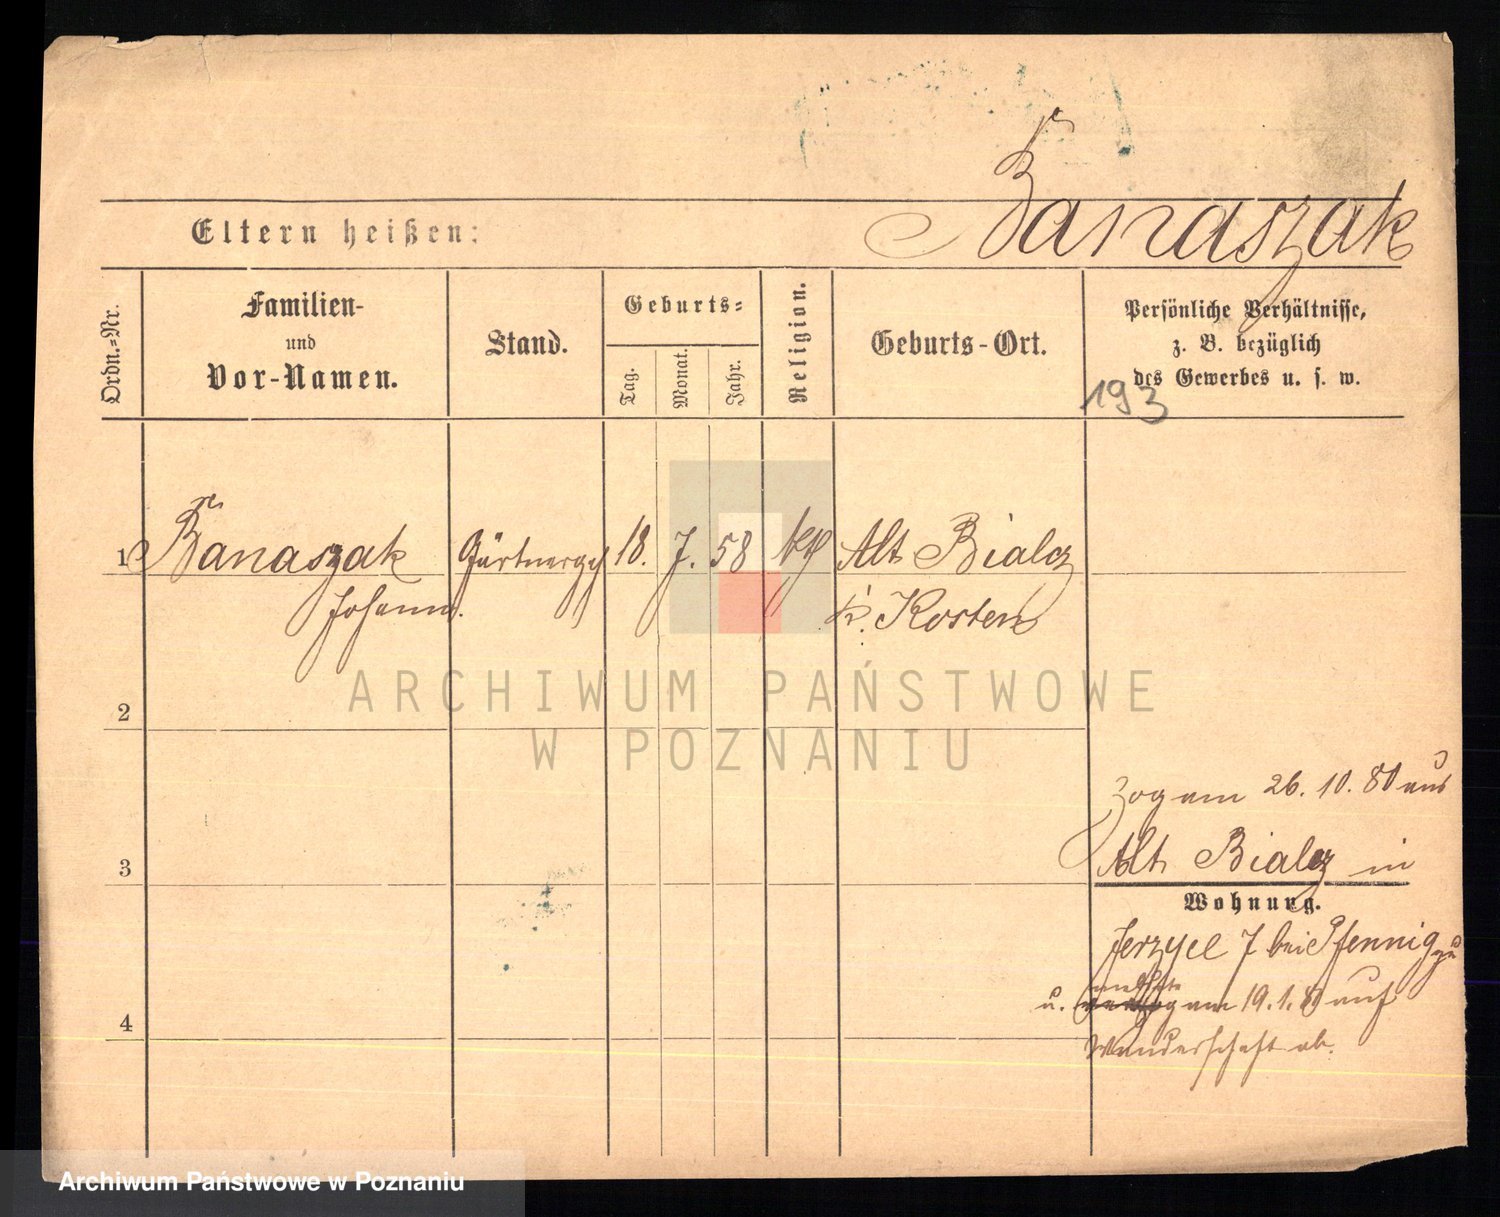 Banaszak
Eltern heißen:
Ordn.=Nr.
Familien-
und
Vor-Namen.
Stand.
Geburts=
Tag.
Monat.
Jahr.
Religion.
Geburts-Ort.
Persönliche Verhältnisse,
z. B. bezüglich
des Gewerbes u. s. w.
193
1 Banaszak Gärtnergeh 18. 7. 58 kth Alt Bialcz
Johann. Kosten
2
ARCHIWUM PAŃSTWOWE
W POZNANIU
Zog am 26. 10. 80 aus
3
Alt Bialcz in
Wohnung.
Jerzyce 7 bei Pfennig
u. meldete am 19. 1. 81 auf
4
Wanderschaft ab.
Archiwum Państwowe w Poznaniu